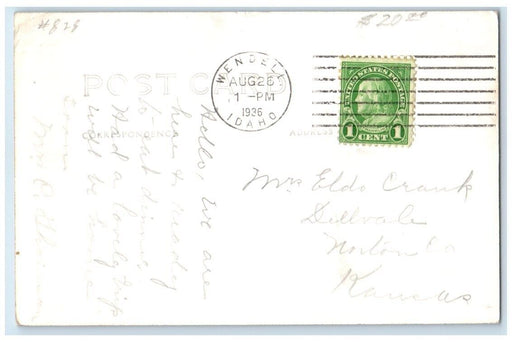 #828
$ 20.00
POST CARD
CORRESPONDENCE
ADDRESS
WENDELL
AUG 26
1-PM
1936
IDAHO
UNITED STATES POSTAGE
1 CENT 1
Hello, We are
here &
dinner,
Had a lovely trip
will be home
soon
Mrs Eldo Crank
Dellvale
Norton Co
Kansas